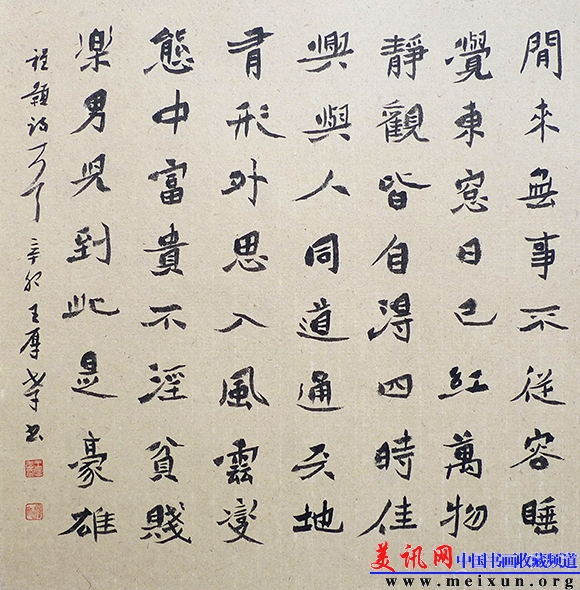 閒來無事不從容睡
覺東窓日已紅萬物
靜觀皆自得四時佳
興與人同道通天地
有形外思入風雲變
態中富貴不淫貧賤
樂男兒到此是豪雄
程顥詩一首 辛卯王厚書
美讯网 中国书画收藏频道
www.meixun.org